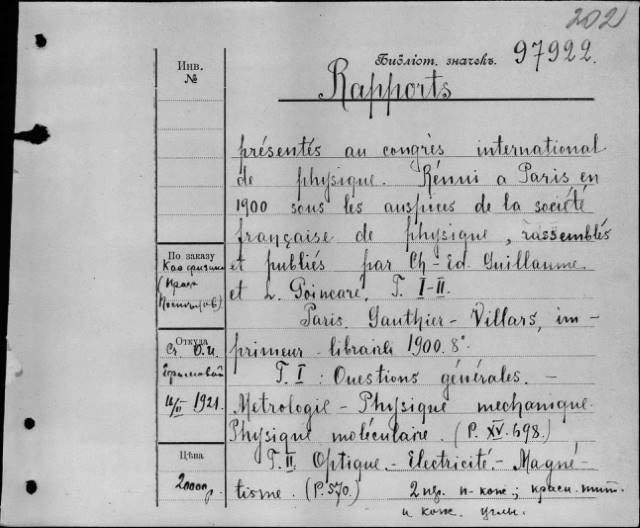 202
Библіот. значекъ. 97922.
Инв.
№
Rapports
présentés au congrès international
de physique. Réuni a Paris en
1900 sous les auspices de la société
française de physique, rassemblés
et publiés par Ch-Ed. Guillaume
et L. Poincaré. T. I-II.
Paris. Gauthier-Villars, im-
primeur-libraire 1900. 8°.
T. I: Questions générales. -
Metrologie - Physique mechanique.
Physique moléculaire. (P. XV. 698.)
T. II. Optique. - Electricité. - Magné-
tisme. (P. 570.) 2 пер. п-кож.; красн. тит.
и кож. углы.
По заказу
Откуда
1921.
Цѣна
20000 р.